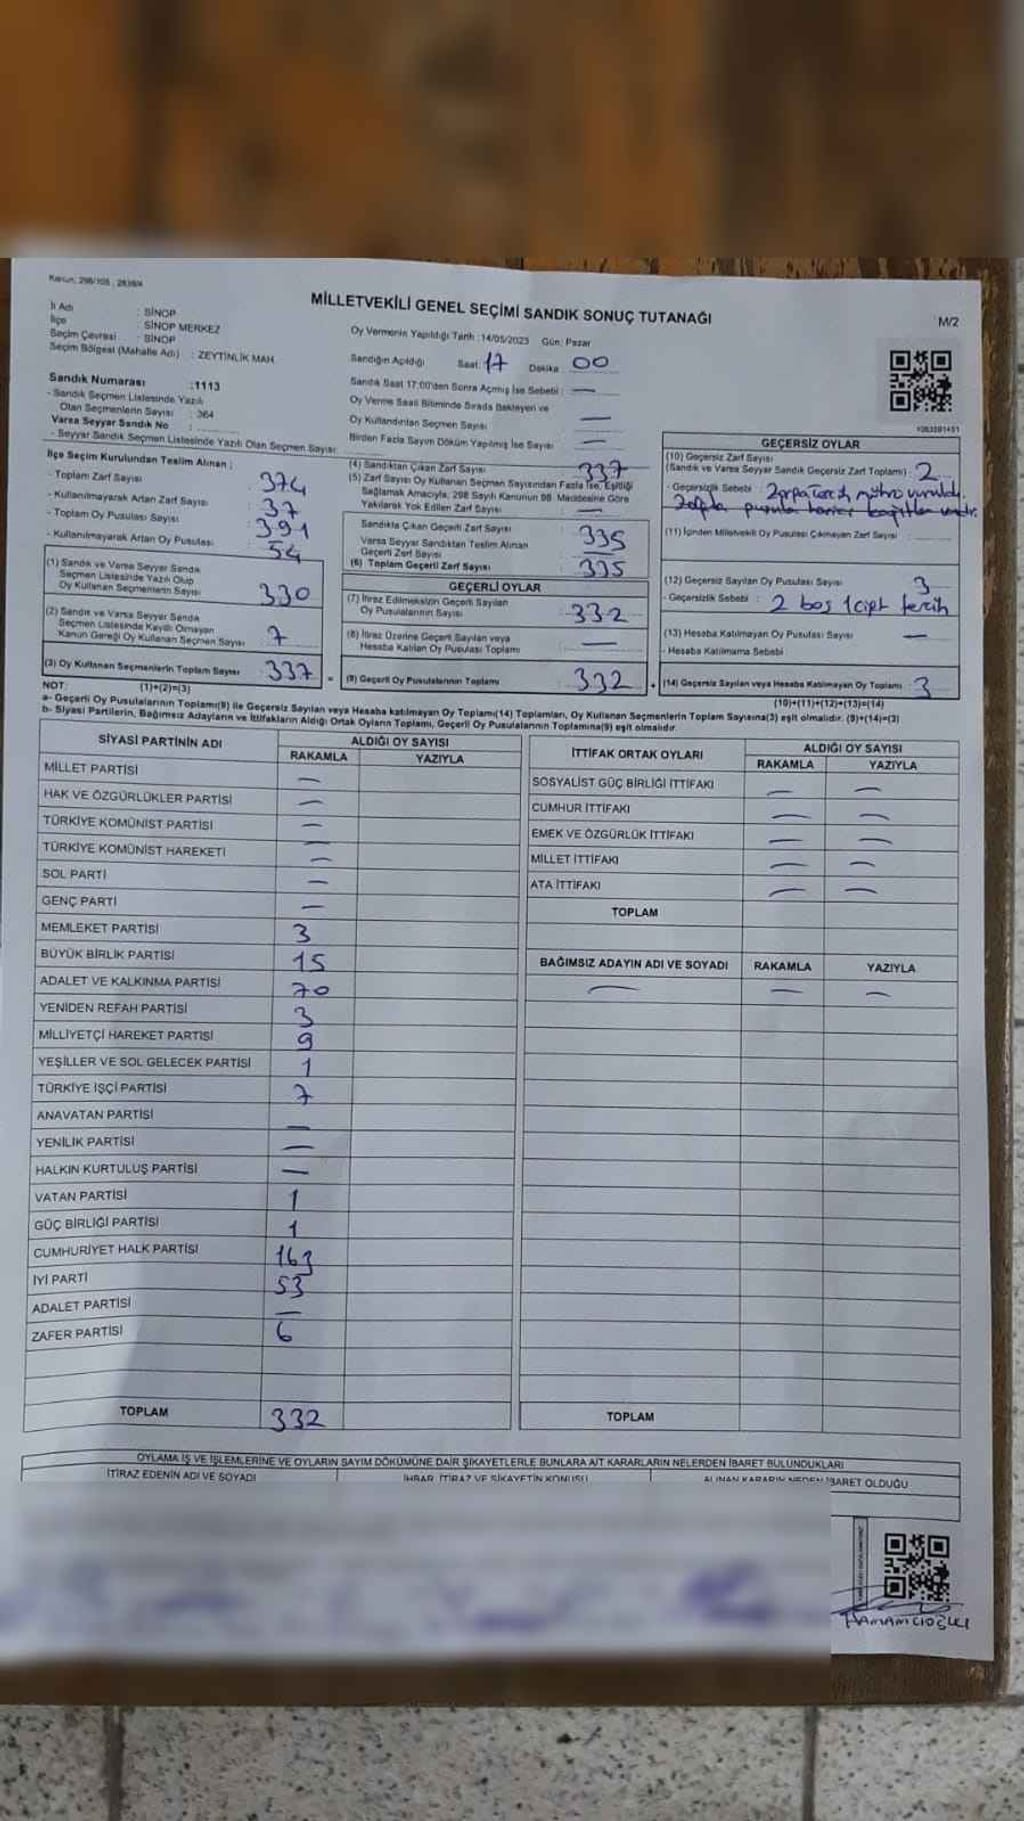 Kanun: 298/105 , 2839/4
MİLLETVEKİLİ GENEL SEÇİMİ SANDIK SONUÇ TUTANAĞI
M/2
İl Adı : SİNOP
İlçe : SİNOP MERKEZ
Seçim Çevresi : SİNOP
Seçim Bölgesi (Mahalle Adı) : ZEYTİNLİK MAH.
Oy Vermenin Yapıldığı Tarih :14/05/2023 Gün: Pazar
Sandığın Açıldığı Saat: 17 Dakika: 00
Sandık Saat 17:00'den Sonra Açmış İse Sebebi : —
Oy Verme Saati Bitiminde Sırada Bekleyen ve
Oy Kullandırılan Seçmen Sayısı —
Birden Fazla Sayım Döküm Yapılmış İse Sayısı —
Sandık Numarası :1113
- Sandık Seçmen Listesinde Yazılı
Olan Seçmenlerin Sayısı : 364
Varsa Seyyar Sandık No :
- Seyyar Sandık Seçmen Listesinde Yazılı Olan Seçmen Sayısı:
İlçe Seçim Kurulundan Teslim Alınan ;
- Toplam Zarf Sayısı : 374
- Kullanılmayarak Artan Zarf Sayısı : 37
- Toplam Oy Pusulası Sayısı : 391
- Kullanılmayarak Artan Oy Pusulası : 54
(1) Sandık ve Varsa Seyyar Sandık
Seçmen Listesinde Yazılı Olup
Oy Kullanan Seçmenlerin Sayısı 330
(2) Sandık ve Varsa Seyyar Sandık
Seçmen Listesinde Kayıtlı Olmayan
Kanun Gereği Oy Kullanan Seçmen Sayısı 7
(3) Oy Kullanan Seçmenlerin Toplam Sayısı 337
(4) Sandıktan Çıkan Zarf Sayısı 337
(5) Zarf Sayısı Oy Kullanan Seçmen Sayısından Fazla İse, Eşitliği
Sağlamak Amacıyla, 298 Sayılı Kanunun 98. Maddesine Göre
Yakılarak Yok Edilen Zarf Sayısı —
Sandıkta Çıkan Geçerli Zarf Sayısı 335
Varsa Seyyar Sandıktan Teslim Alınan
Geçerli Zarf Sayısı —
(6) Toplam Geçerli Zarf Sayısı 335
GEÇERLİ OYLAR
(7) İtiraz Edilmeksizin Geçerli Sayılan
Oy Pusulalarının Sayısı 332
(8) İtiraz Üzerine Geçerli Sayılan veya
Hesaba Katılan Oy Pusulası Toplamı —
(9) Geçerli Oy Pusulalarının Toplamı 332
1083591451
GEÇERSİZ OYLAR
(10) Geçersiz Zarf Sayısı
(Sandık ve Varsa Seyyar Sandık Geçersiz Zarf Toplamı) : 2
- Geçersizlik Sebebi :
(11) İçinden Milletvekili Oy Pusulası Çıkmayan Zarf Sayısı :
(12) Geçersiz Sayılan Oy Pusulası Sayısı 3
- Geçersizlik Sebebi : 2 boş 1 çift tercih
(13) Hesaba Katılmayan Oy Pusulası Sayısı —
- Hesaba Katılmama Sebebi
(14) Geçersiz Sayılan veya Hesaba Katılmayan Oy Toplamı 3
NOT: (1)+(2)=(3)
(10)+(11)+(12)+(13)=(14)
a- Geçerli Oy Pusulalarının Toplamı(9) ile Geçersiz Sayılan veya Hesaba katılmayan Oy Toplamı(14) Toplamları, Oy Kullanan Seçmenlerin Toplam Sayısına(3) eşit olmalıdır. (9)+(14)=(3)
b- Siyasi Partilerin, Bağımsız Adayların ve İttifakların Aldığı Ortak Oyların Toplamı, Geçerli Oy Pusulalarının Toplamına(9) eşit olmalıdır.
SİYASİ PARTİNİN ADI ALDIĞI OY SAYISI
RAKAMLA YAZIYLA
MİLLET PARTİSİ —
HAK VE ÖZGÜRLÜKLER PARTİSİ —
TÜRKİYE KOMÜNİST PARTİSİ —
TÜRKİYE KOMÜNİST HAREKETİ —
SOL PARTİ —
GENÇ PARTİ —
MEMLEKET PARTİSİ 3
BÜYÜK BİRLİK PARTİSİ 15
ADALET VE KALKINMA PARTİSİ 70
YENİDEN REFAH PARTİSİ 3
MİLLİYETÇİ HAREKET PARTİSİ 9
YEŞİLLER VE SOL GELECEK PARTİSİ 1
TÜRKİYE İŞÇİ PARTİSİ 7
ANAVATAN PARTİSİ —
YENİLİK PARTİSİ —
HALKIN KURTULUŞ PARTİSİ —
VATAN PARTİSİ 1
GÜÇ BİRLİĞİ PARTİSİ 1
CUMHURİYET HALK PARTİSİ 163
İYİ PARTİ 53
ADALET PARTİSİ —
ZAFER PARTİSİ 6
TOPLAM 332
İTTİFAK ORTAK OYLARI ALDIĞI OY SAYISI
RAKAMLA YAZIYLA
SOSYALİST GÜÇ BİRLİĞİ İTTİFAKI — —
CUMHUR İTTİFAKI — —
EMEK VE ÖZGÜRLÜK İTTİFAKI — —
MİLLET İTTİFAKI — —
ATA İTTİFAKI — —
TOPLAM
BAĞIMSIZ ADAYIN ADI VE SOYADI RAKAMLA YAZIYLA
— — —
TOPLAM
OYLAMA İŞ VE İŞLEMLERİNE VE OYLARIN SAYIM DÖKÜMÜNE DAİR ŞİKAYETLERLE BUNLARA AİT KARARLARIN NELERDEN İBARET BULUNDUKLARI
İTİRAZ EDENİN ADI VE SOYADI İHBAR, İTİRAZ VE ŞİKAYETİN KONUSU ALINAN KARARIN NEDEN İBARET OLDUĞU
HAMAMCIOĞLU